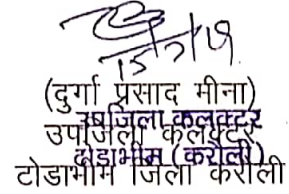 (दुर्गा प्रसाद मीना)
उपजिला कलक्टर
उपजिला कलेक्टर
टोडाभीम (करौली)
टोडाभीम जिला करौली